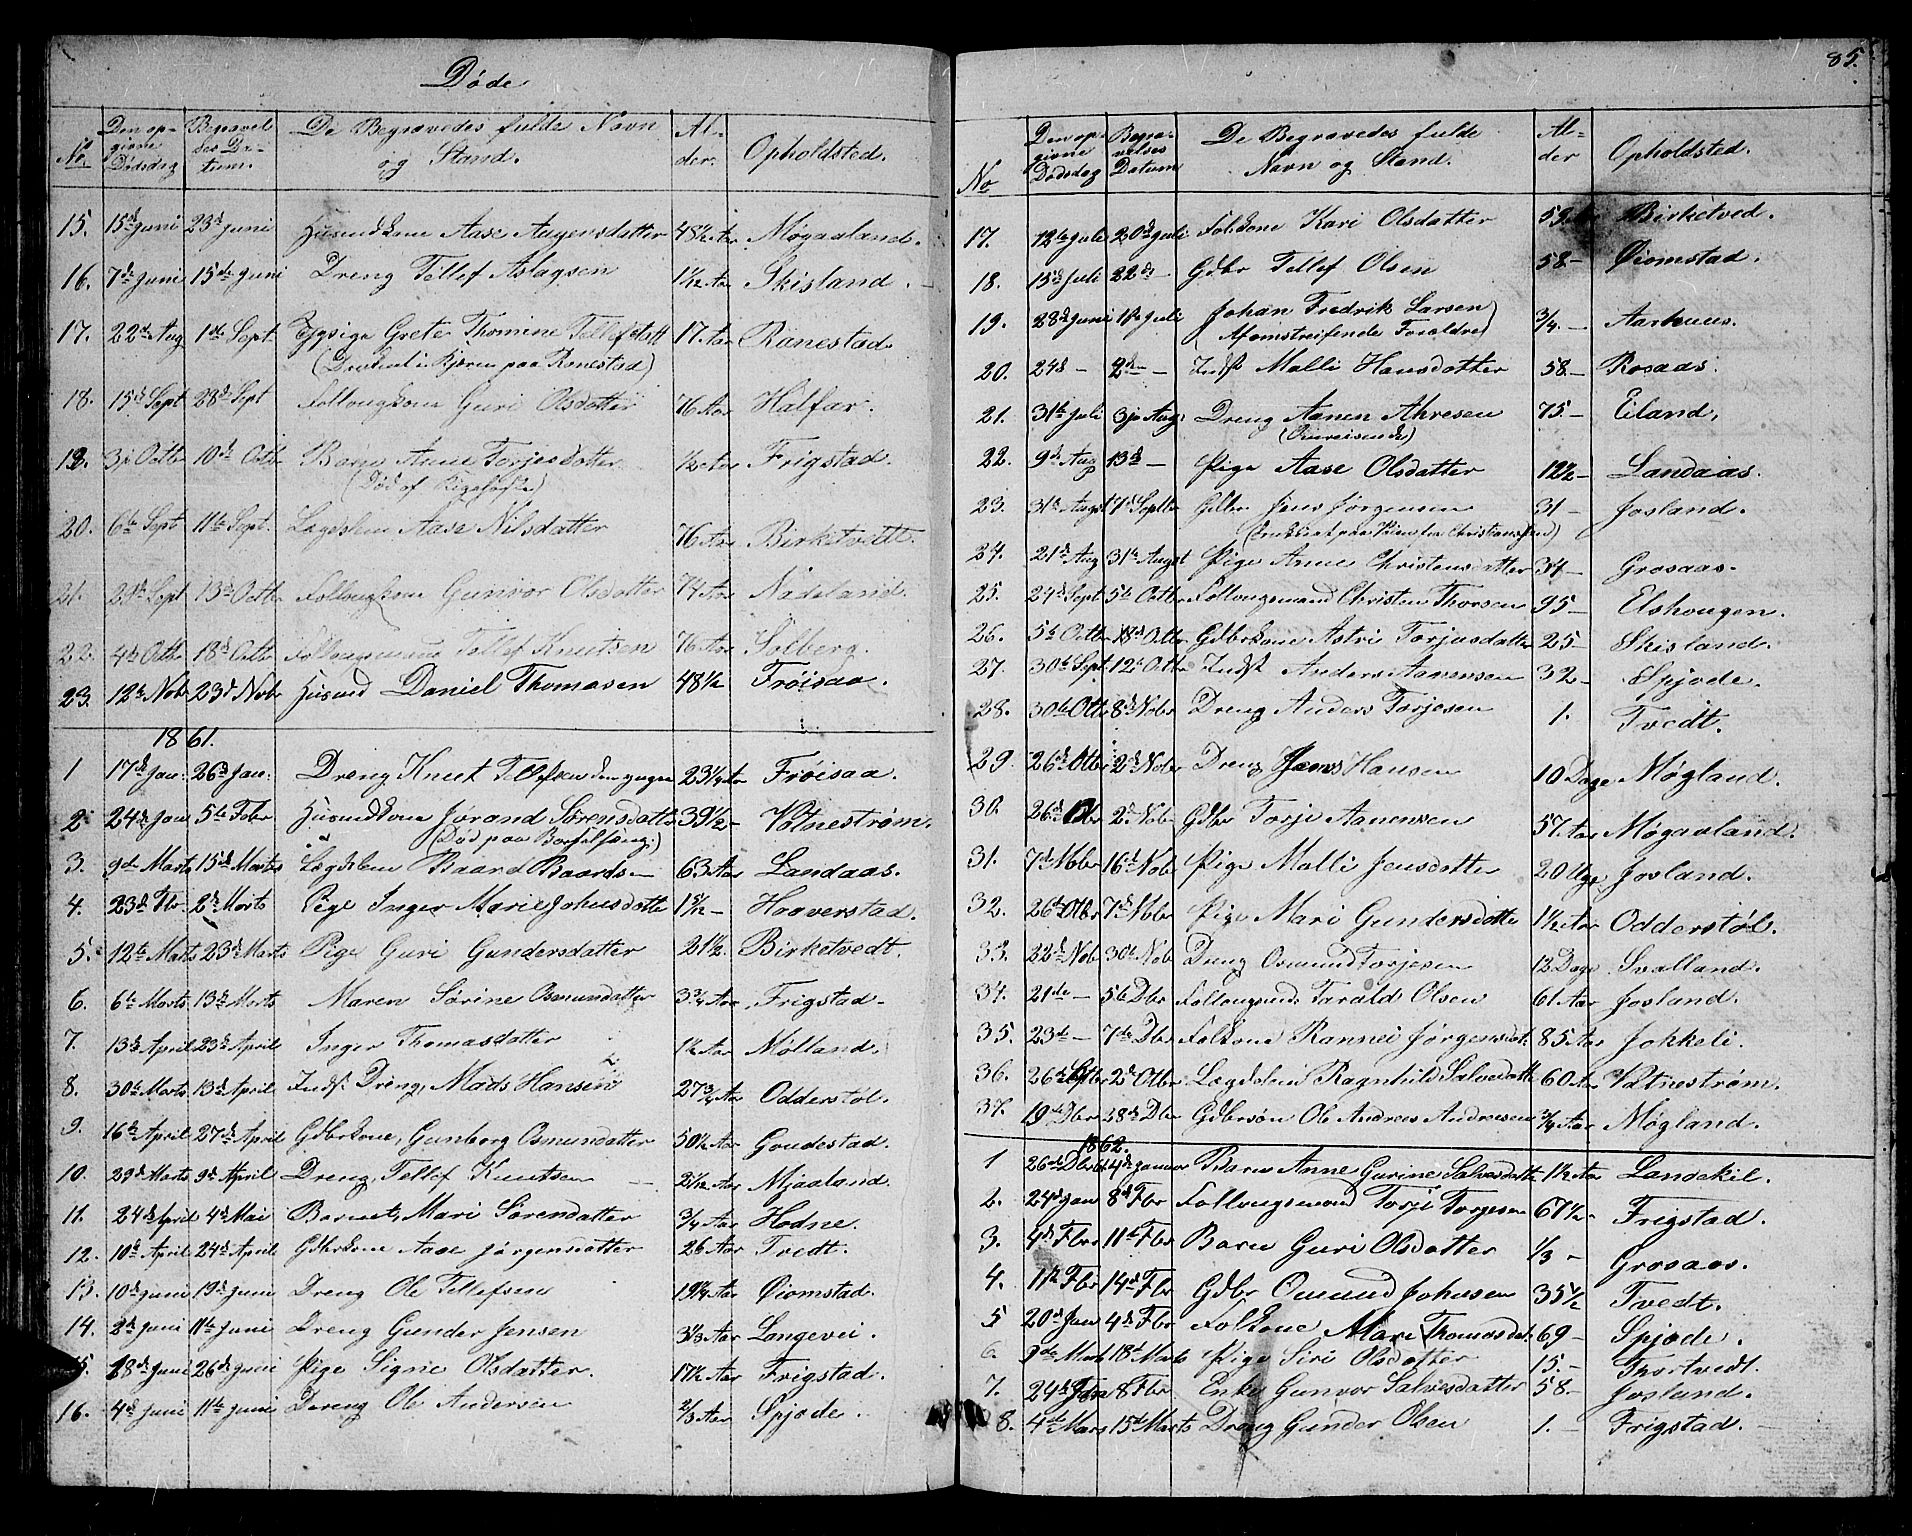 Døde
No. Den opgivne Dødsdag Begravelses Datum. De Begravedes fulde Navn og Stand. Alder. Opholdsted.
15. 15d Juni 23d Juni Husmdkone Aase Aagensdatter 48½ Aar Møgaaland.
16. 7de Juni 15de Juni Dreng Tellef Aslagsen 1 1/12 Aar Skisland.
17. 22d Aug 1ste Sept. Pige Grete Thomine Tellefsdatt 17 Aar Rånestad.
18. 15d Sept 28d Sept Follougkone Guri Olsdatter 76 Aar Halfar.
19. 3je Octb 10d Octb Barn Anne Torjesdatter ½ Aar Frigstad.
20. 6te Sept 11te Sept. Lægdslem Aase Nilsdatter 76 Aar Birketvedt.
21. 29d Sept 13de Octbr Follougkone Gunvor Olsdatter 74 Aar Nådeland.
22. 4de Octb 18d Octbr Follougsmand Tellef Knutsen 76 Aar Solberg.
23. 12te Nobr 23d Nobr Husmd Daniel Thomasen 48½ Frøisaa.
1861.
1 17de Jan: 26d Jan: Dreng Knut Tellefsen 23¼ Aar Frøisaa.
2 24de Jan 5te Febr Husmdkone Jørand Sørensdatter 39½ — Vatnestrøm.
(Død paa Barselseng)
3. 9de Marts 15de Marts Lægdslem Baard Baards— 63 Aar Landaas.
4. 23de Fbr 2de Marts Pige Inger Marie Johnsdatte 1 5/12 — Haaverstad.
5. 12te Marts 23de Marts Pige Guri Gundersdatter 21½. Birketvedt.
6. 6te Marts 13de Marts Maren Sørine Osmundatter 3¾ Aar Frigstad.
7. 13de April 23de April Inger Thomasdatter 1½ Aar Mølland.
8. 30te Marts 13de April Indst. Dreng, Mads Hansen 27¾ Aar Odderstøl.
9. 16de April 27de April Gdbrkone, Gunborg Osmundatter 50½ Aar Goudestad.
10. 29de Marts 9de April Dreng, Tellef Knutsen 2 1/12 Aar Mjaaland.
11. 24de April 4de Mai Barnet, Mari Sørensdatter ¾ Aar Hodne.
12. 10de April 24de April Gdbrkone Aase Jørgensdatter 26 Aar Tvedt.
13. 10de Juni 19de Juni Dreng Ole Tellefsen 19¼ Aar Øiomstad.
14. 2de Juni 11te Juni Dreng Gunder Jensen 3⅓ Aar Langevei.
15. 18de Juni 26de Juni Pige Signe Olsdatter. 17½ Aar Frigstad.
16. 4de Juni 11te Juni Dreng Ole Andersen ⅔ Aar Spjøde.
85.
No Den opgivne Dødsdag Begravelses Datum De Begravedes fulde Navn og Stand. Alder Opholdsted.
17. 12te Juli 20de Juli Folkone Kari Olsdatter 59 Birketved.
18. 15de Juli 22de — Gdbr Tellef Olsen 58 — Øiomstad.
19. 28de Juni 11te Juli Johan Fredrik Larsen ¾ — Aarhuus.
(Afomstreifende Forældre)
20. 24de — 2de — Indst Malli Hansdatter 58 — Rosaas.
21. 31te Juli 3je Aug: Dreng Aanen Ahresen 75 — Eiland.
22. 9de Aug 13de — Pige Aase Olsdatter 12½ — Landaas.
23. 31te Augst 7de Septbr Gdbr Jens Jørgensen 31 — Josland.
24. 21de Aug 31te Augst Pige Anne Christensdatter 34 — Grosaas.
25. 24de Sept 5te Octbr Follougsmand Christen Thorsen 95 — Elshougen.
26. 5te Octbr 18de Octbr Gdbrkone Astri Torjusdatter 25 — Skisland.
27. 30te Sept. 12te Octbr Indst Anders Aanensen 32 — Spjøde.
28. 30te Octbr 8de Nobr Dreng Anders Torjesen 1. Tvedt.
29. 26de Octbr 2de Nobr Dreng Jens Hansen 10 Dage Møgland.
30. 26de Obr 2de Nobr Gdbr Torje Aanensen 57 Aar Møgaaland.
31. 7de Nobr 16de Nobr Pige Malli Jensdatter 20 Uger Josland.
32. 26de Octbr 7de Nobr Pige Mari Gundersdatte 1½ Aar Odderstøl.
33. 22de Nobr 30te Nobr Dreng Osmund Torjesen 12 Dage Svalland.
34. 21de — 5te Dbr Follougsmd. Tarald Olsen 61 Aar Josland.
35. 23de — 7de Dbr Folkone Rannei Jørgensdat. 85 Aar Jokkeli.
36. 26de Septbr 2de Otbr Lægdslem Ragnhild Salvesdatte 60 Aar Vatnestrøm.
37. 19de Dbr 28de Dbr Gdbrsøn Ole Andreas Andresen ¾ Aar Møgland.
1862.
1 26de Dbr 4de Januar Barn Anne Gurine Salvesdatte 1½ Aar Landekil.
2. 24de Jan 8de Fbr Follougsmand Torje Torjesen 67½ — Frigstad.
3. 4de Fbr 11te Fbr Barn Guri Olsdatter ⅓ — Grosaas.
4. 1te Fbr 14de Fbr Gdbr Omund Johnsen 35½ Tvedt.
5 20de Jan 4de Fbr Folkone Mari Thomasdat. 69 — Spjøde.
6. 9de Marts 18de Marts Pige Siri Olsdatter 15. — Thortvedt.
7. 24de Jan 8 Fbr Enke Gunvor Salvesdatter 58 — Josland.
8. 4de Mars 15de Marts Dreng Gunder Olsen 1. — Frigstad.